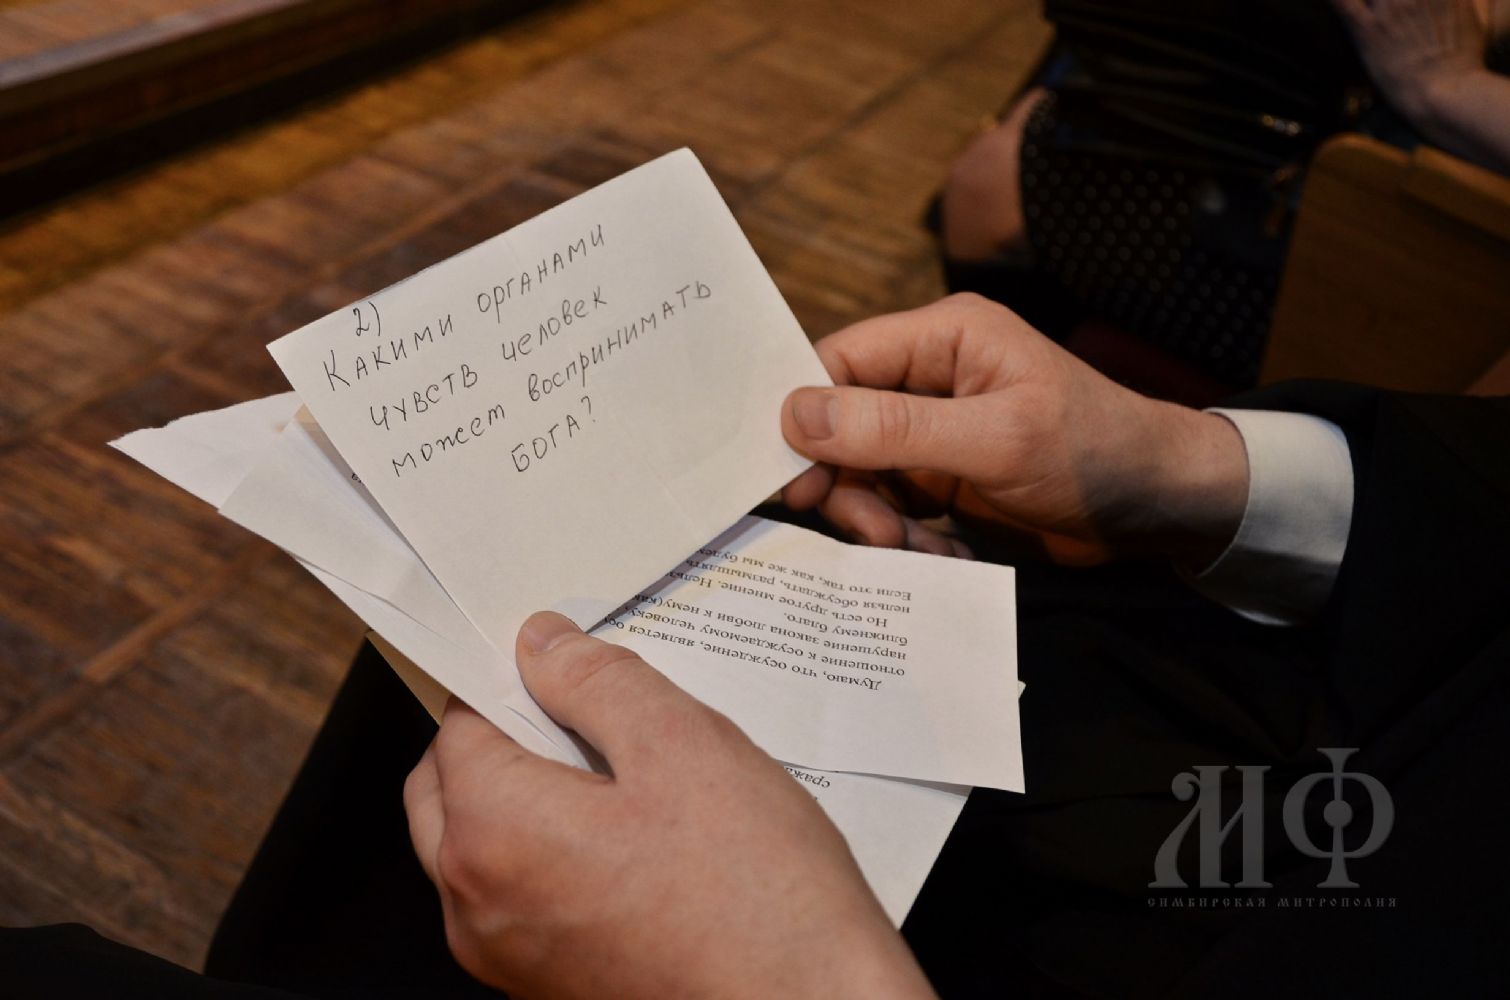 2)
Какими органами
чувств человек
может воспринимать
Бога?
Думаю, что осуждение, является
отношение к осуждаемому человеку,
нарушение закона любви к нему(как
ближнему благо.
Но есть другое мнение.
нельзя обсуждать, размышлять
Если это так, как же мы будем
МФ
СИМБИРСКАЯ МИТРОПОЛИЯ